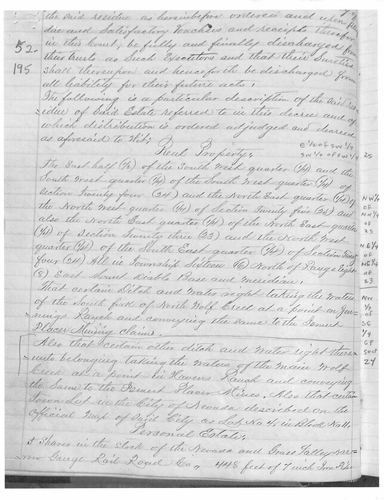 the said residue as hereinbefore ordered and upon
due and satisfactory vouchers and receipts therefor
in this Court, be fully and finally discharged from
52-
their trusts as Such Executors and that their Sureties
195
Shall thereupon and henceforth be discharged from
all liability for their future acts:
The following is a particular description of the said resi-
due of Said Estate referred to in this decree and of
which distribution is ordered adjudged and decreed
as aforesaid to Wit;
Real Property:
The East half (½) of the South West quarter (¼) and the
South West quarter (¼) of the South West quarter (¼) of
Section Twenty four (24) and the North East quarter (¼) of
the North West quarter (¼) of Section Twenty five (25) and
also the North East quarter (¼) of the North East quarter
(¼) of Section Twenty three (23) and the North West
quarter (¼) of the South East quarter (¼) of Section Twenty
four (24) All in Township Sixteen (16) North of Range Eight
(8) East Mount Diablo Base and Meridian:
That certain Ditch and Water right taking the Waters
of the South fork of North Wolf Creek at a point on
Ranch and conveying the same to the
Placer Mining claims.
Also that certain other ditch and Water right there-
unto belonging taking the Waters of the Main Wolf
Creek at a point in Ranch and conveying
the Same to the Placer Mines. Also that certain
Town Lot in the City of Nevada described on the
Official Map of Said City as Lot No in Block No 11.
Personal Estate:
Shares in the Stock of the Nevada and Grass Valley Nar-
row Gauge Rail Road Co., 448 feet of 7 inch Iron Pipe